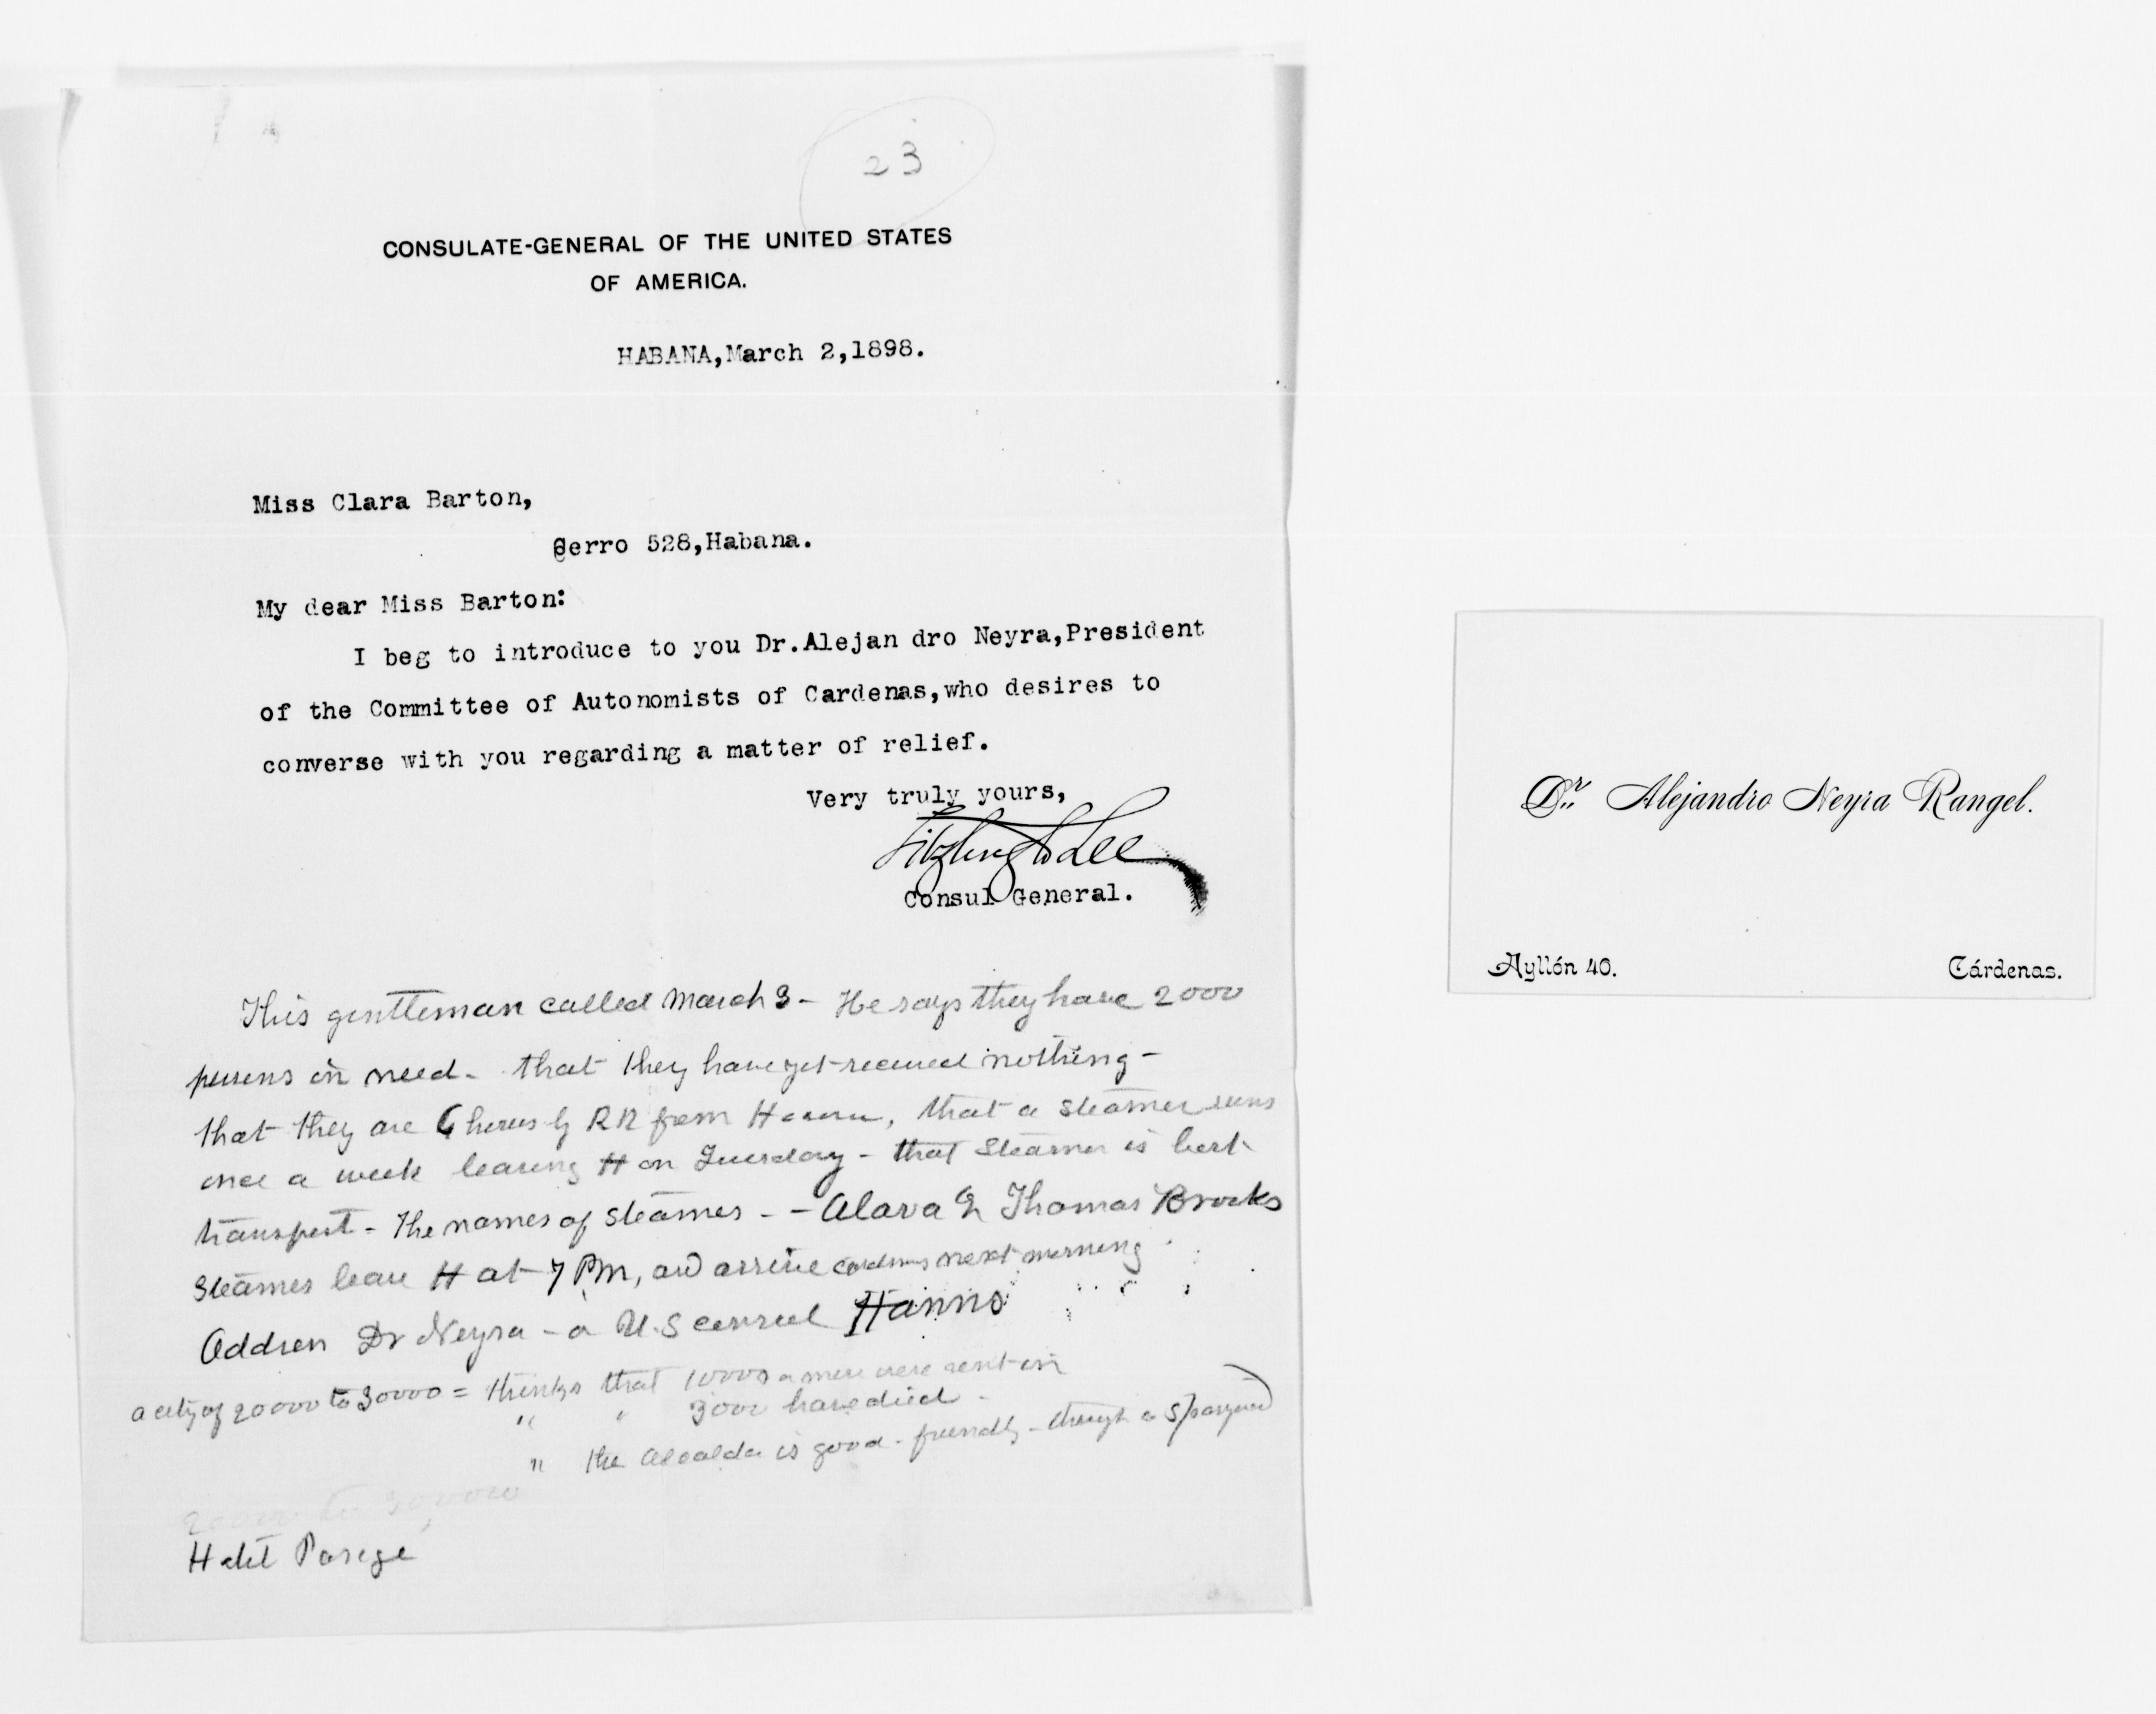 23
CONSULATE-GENERAL OF THE UNITED STATES
OF AMERICA.
HABANA,March 2,1898.
Miss Clara Barton,
Cerro 528,Habana.
My dear Miss Barton:
I beg to introduce to you Dr.Alejan dro Neyra,President
of the Committee of Autonomists of Cardenas,who desires to
converse with you regarding a matter of relief.
Very truly yours,
Fitzhugh Lee
Consul General.
This gentleman called March 3 - He says they have 2000
persons in need - that they have yet received nothing -
that they are 6 hours by RR from Havana, that a steamer runs
once a week leaving H on Tuesday - that steamer is best
transport - The names of steamers - - Alava & Thomas Brooks
Steamers leave H at 7 PM, and arrive Cardenas next morning
Address Dr Neyra - a U.S consul
a city of 20000 to 30000 = thinks that 10000 or more were sent in
" " 3000 have died -
" the Alcalda is good - friendly - though a Spaniard)
20000 to 30000
Dr. Alejandro Neyra Rangel.
Ayllón 40.
Cárdenas.